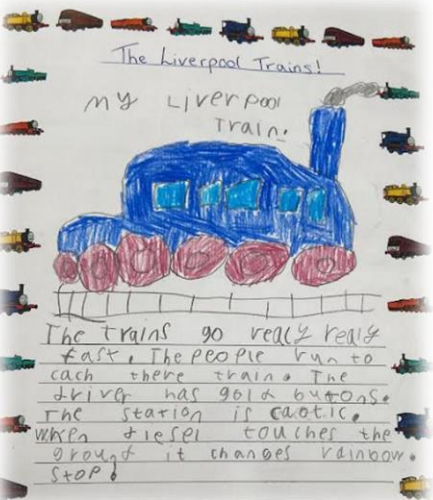 The Liverpool Trains!
My Liverpool
Train.
The trains go realy realy
fast. The people run to
cach there train. The
driver has gold butons.
The station is caotic.
when diesel touches the
ground it changes rainbow.
stop!